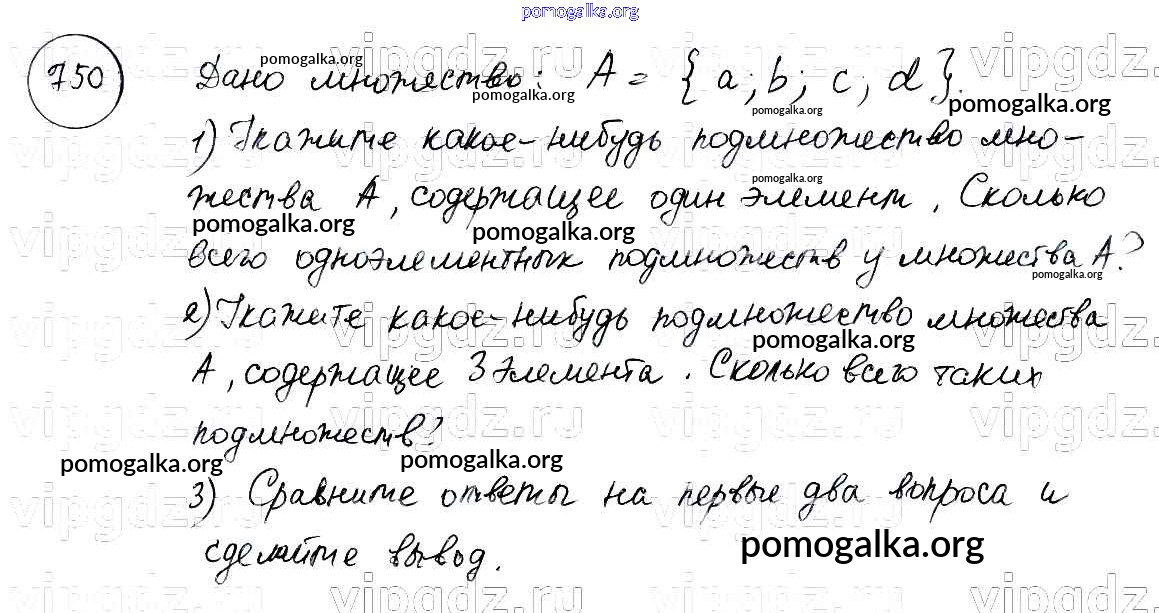 pomogalka.org
750 Дано множество: A = {a; b; c; d}.
1) Укажите какое-нибудь подмножество мно-
жества A, содержащее один элемент. Сколько
всего одноэлементных подмножеств у множества A?
2) Укажите какое-нибудь подмножество множества
A, содержащее 3 элемента. Сколько всего таких
подмножеств?
3) Сравните ответы на первые два вопроса и
сделайте вывод.
pomogalka.org
vipgdz.ru